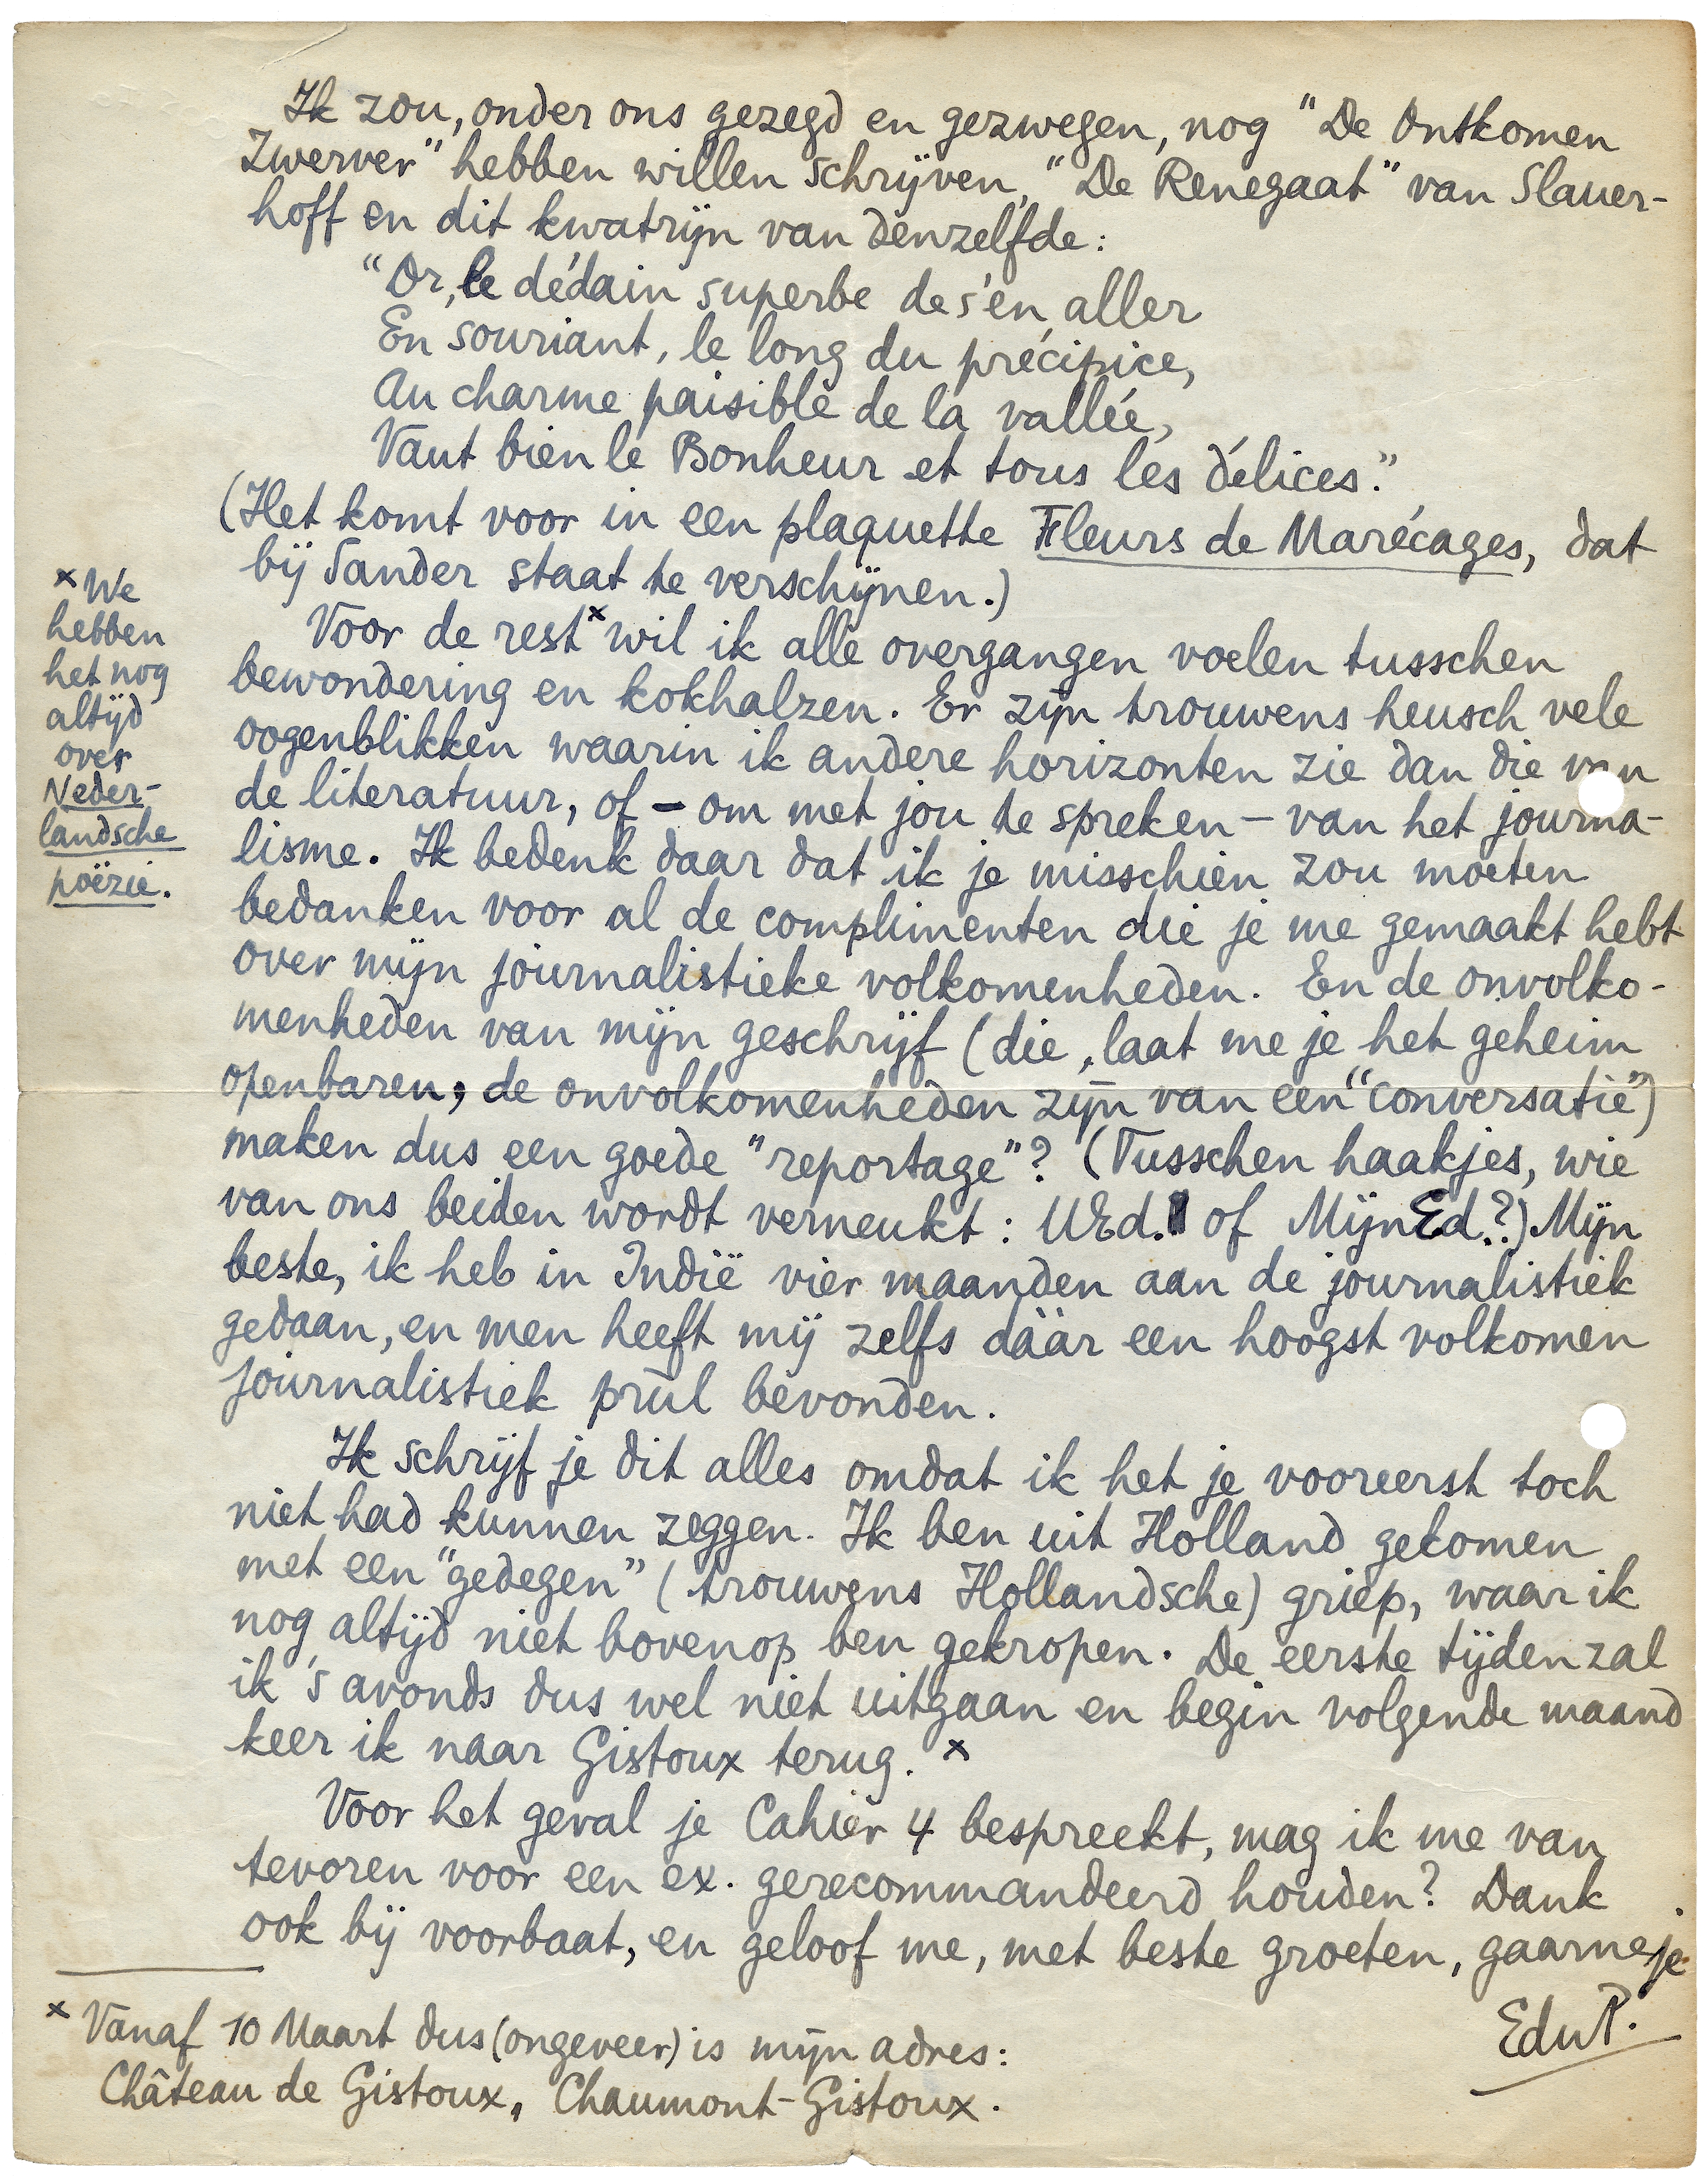 Ik zou, onder ons gezegd en gezwegen, nog "De Ontkomen
Zwerver" hebben willen schrijven, "De Renegaat" van Slauer-
hoff en dit kwatrijn van denzelfde:
"Or, le dédain superbe de s'en aller
En souriant, le long du précipice,
Au charme paisible de la vallée,
Vaut bien le Bonheur et tous les délices."
(Het komt voor in een plaquette Fleurs de Marécages, dat
bij Sander staat te verschijnen.)
Voor de rest x wil ik alle overgangen voelen tusschen
bewondering en kokhalzen. Er zijn trouwens heusch vele
oogenblikken waarin ik andere horizonten zie dan die van
de literatuur, of – om met jou te spreken – van het journa-
lisme. Ik bedenk daar dat ik je misschien zou moeten
bedanken voor al de complimenten die je me gemaakt hebt
over mijn journalistieke volkomenheden. En de onvolko-
menheden van mijn geschrijf (die, laat me je het geheim
openbaren, de onvolkomenheden zijn van een "conversatie")
maken dus een goede "reportage"? (Tusschen haakjes, wie
van ons beiden wordt verneukt: UEd. of MijnEd.?) Mijn
beste, ik heb in Indië vier maanden aan de journalistiek
gedaan, en men heeft mij zelfs dáár een hoogst volkomen
journalistiek prul bevonden.
Ik schrijf je dit alles omdat ik het je vooreerst toch
niet had kunnen zeggen. Ik ben uit Holland gekomen
met een "gedegen" (trouwens Hollandsche) griep, waar ik
nog altijd niet bovenop ben gekropen. De eerste tijden zal
ik 's avonds dus wel niet uitgaan en begin volgende maand
keer ik naar Gistoux terug. x
Voor het geval je Cahier 4 bespreekt, mag ik me van
tevoren voor een ex. gerecommandeerd houden? Dank
ook bij voorbaat, en geloof me, met beste groeten, gaarne je
EduP.
x We
hebben
het nog
altijd
over
Neder-
landsche
poëzie.
x Vanaf 10 Maart dus (ongeveer) is mijn adres:
Château de Gistoux, Chaumont-Gistoux.